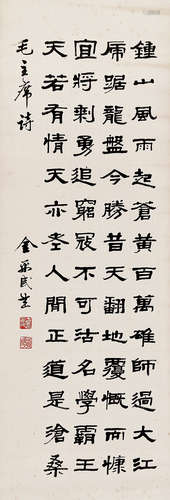 鍾山風雨起蒼黃百萬雄師過大江
虎踞龍盤今勝昔天翻地覆慨而慷
宜將剩勇追窮寇不可沽名學霸王
天若有情天亦老人間正道是滄桑
毛主席诗
金民